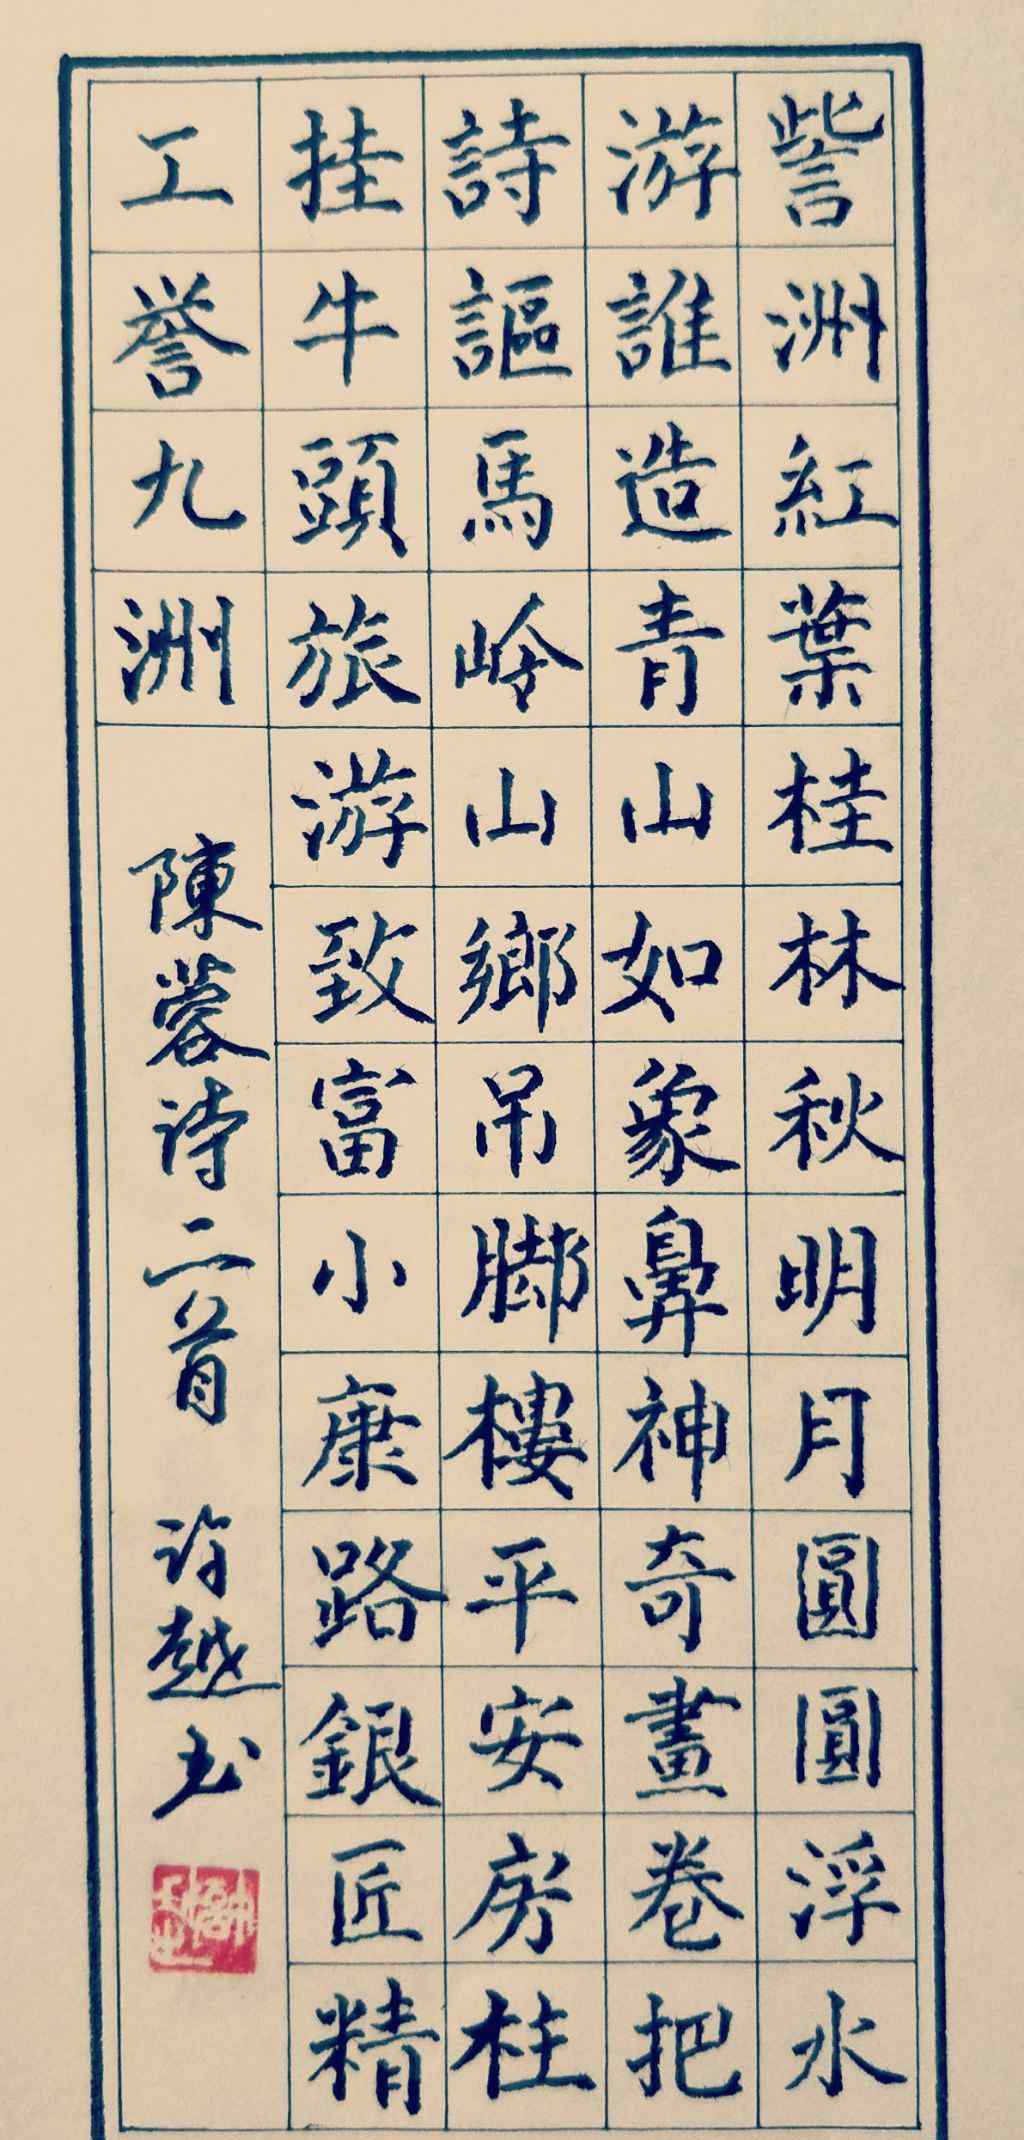 訾洲紅葉桂林秋明月圓圓浮水
游誰造青山如象鼻神奇畫卷把
詩謳馬岭山鄉吊脚樓平安房柱
挂牛頭旅游致富小康路銀匠精
工誉九洲
陳蓉诗二首 许越书